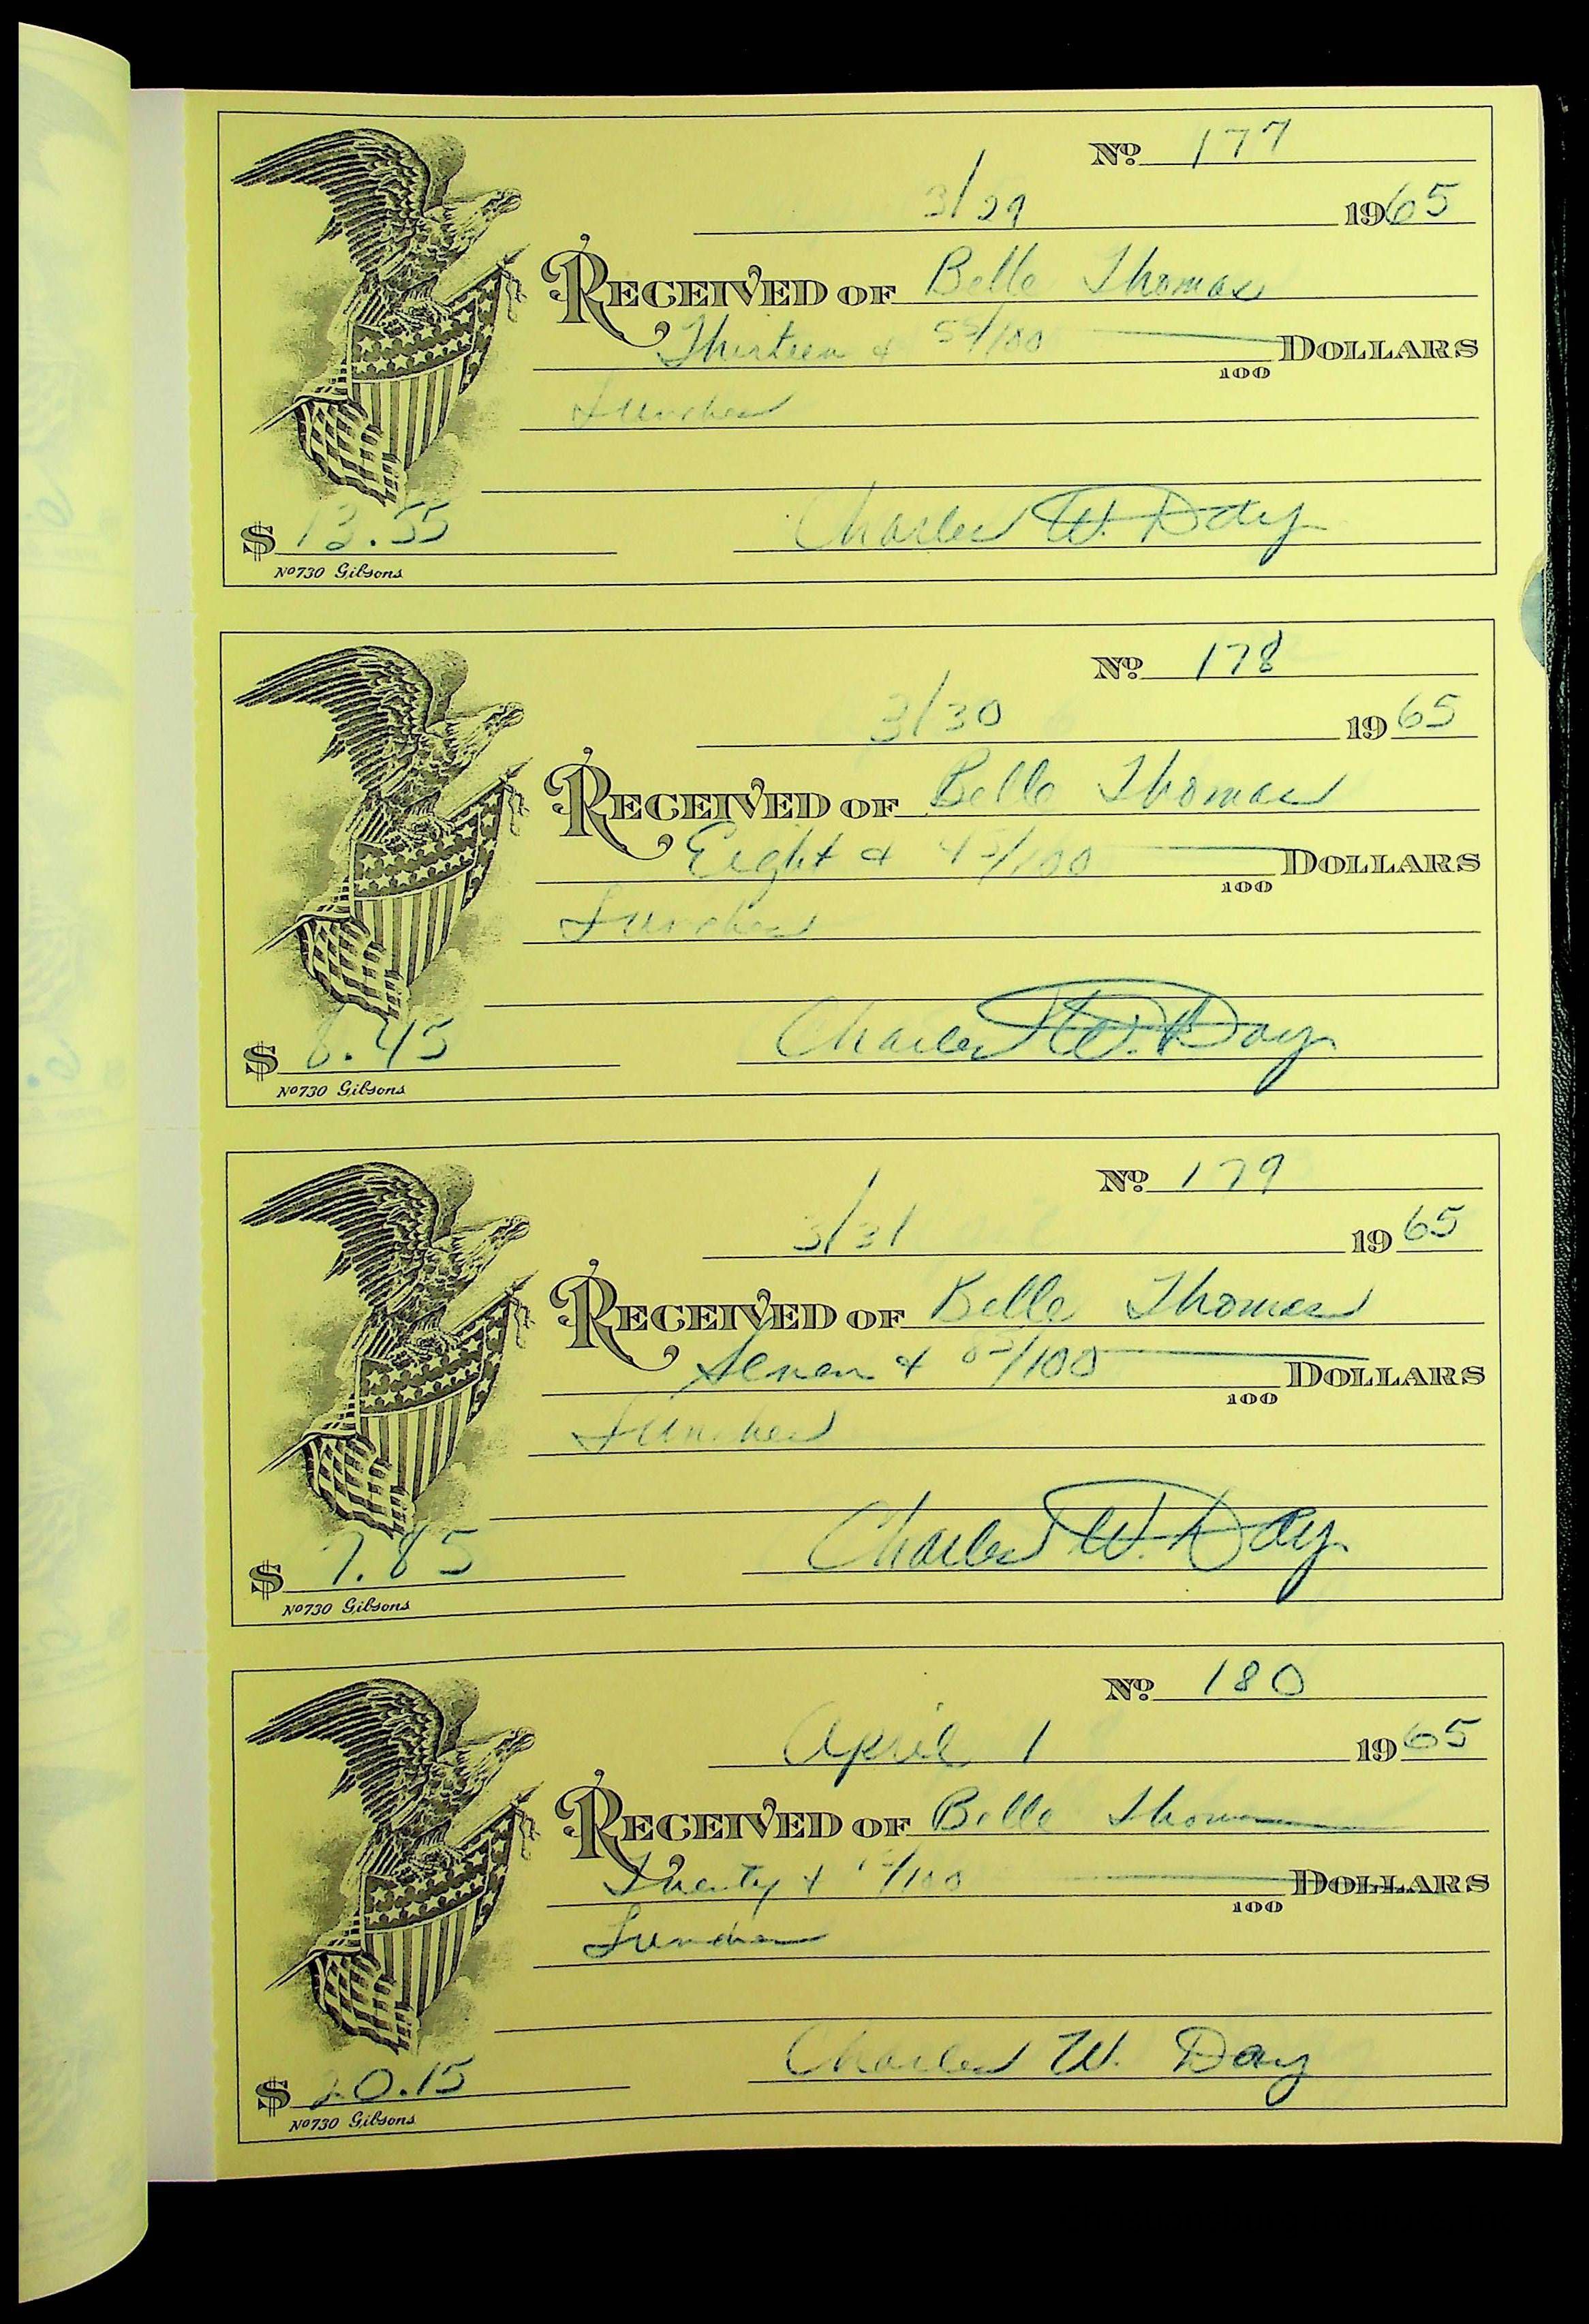 No. 177
3/29 1965
RECEIVED OF Belle Thomas
Thirteen & 55/100 DOLLARS
100
Lunches
Charles W. Day
$ 13.55
No 730 Gibsons
No. 178
3/30 1965
RECEIVED OF Belle Thomas
Eight & 45/100 DOLLARS
100
Lunches
Charles W. Day
$ 8.45
No 730 Gibsons
No. 179
3/31 1965
RECEIVED OF Belle Thomas
Seven & 85/100 DOLLARS
100
Lunches
Charles W. Day
$ 7.85
No 730 Gibsons
No. 180
April 1 1965
RECEIVED OF Belle Thomas
Twenty & 15/100 DOLLARS
100
Lunches
Charles W. Day
$ 20.15
No 730 Gibsons